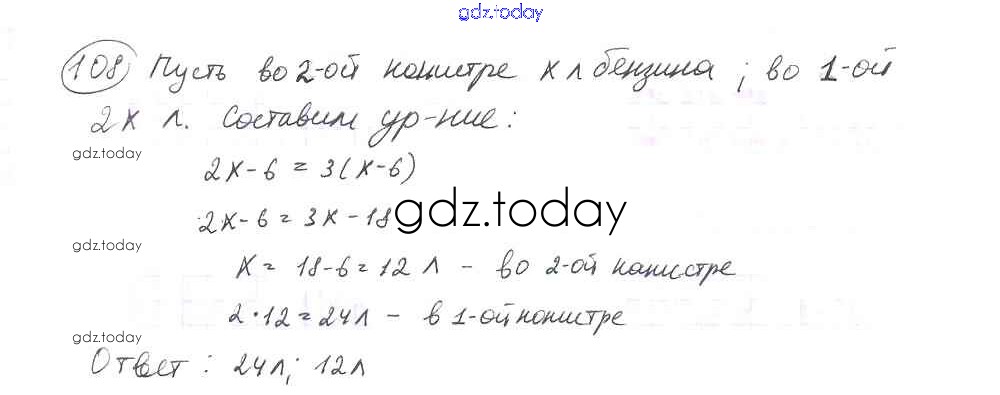 gdz.today
108) Пусть во 2-ой канистре x л бензина; во 1-ой
2x л. Составим ур-ние:
gdz.today
2x-6 = 3(x-6)
2x-6 = 3x-18
gdz.today
gdz.today
x = 18-6 = 12 л - во 2-ой канистре
2·12 = 24л - в 1-ой канистре
gdz.today
Ответ: 24л; 12л